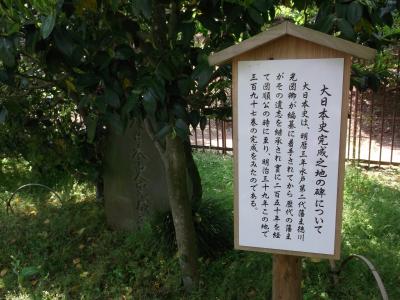 大日本史完成之地の碑について
大日本史は、明暦三年水戸第二代藩主徳川
光圀卿が編纂に着手されてから歴代の藩主
がその遺志を継承され実に二百五十年を経
て圀順公の時に至り、明治三十九年この地で
三百九十七巻の完成をみたのである。